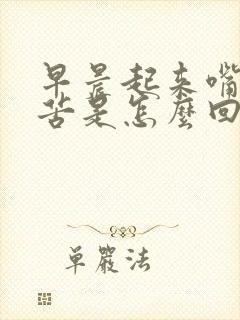 早晨起來嘴
苦是怎麼回
單嚴法